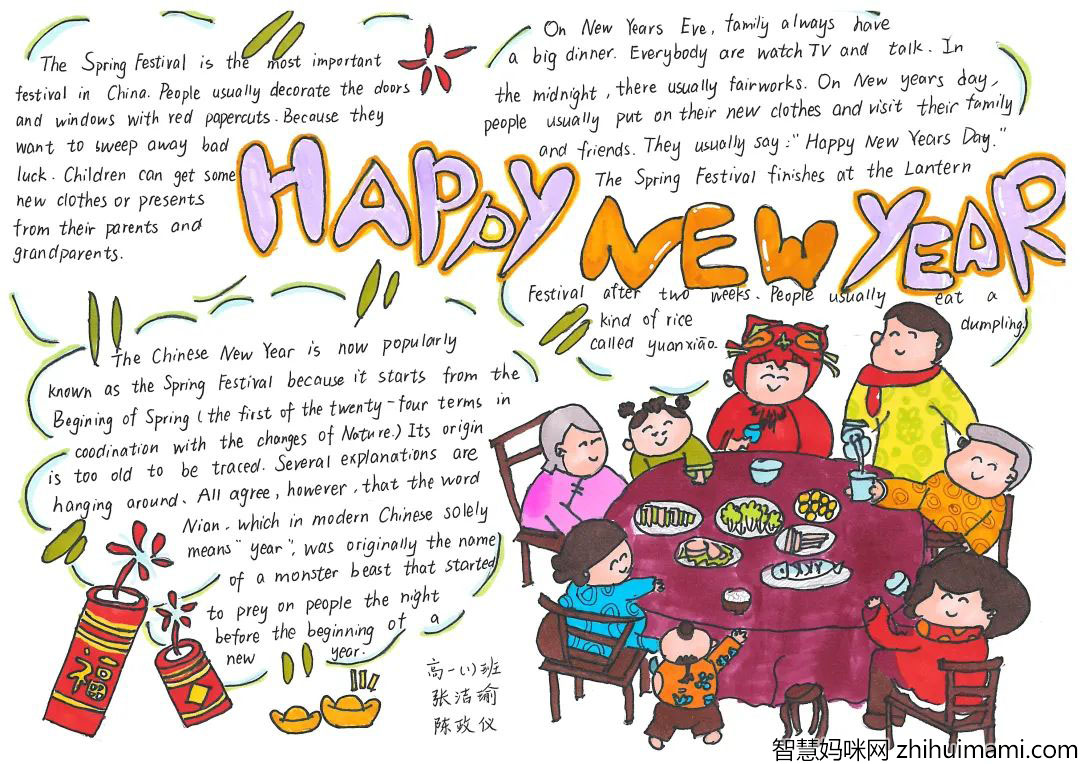 The Spring Festival is the most important
festival in China. People usually decorate the doors
and windows with red papercuts. Because they
want to sweep away bad
luck. Children can get some
new clothes or presents
from their parents and
grandparents.
On New Years Eve, family always have
a big dinner. Everybody are watch TV and talk. In
the midnight, there usually fairworks. On New years day,
people usually put on their new clothes and visit their family
and friends. They usually say: "Happy New Years Day."
The Spring Festival finishes at the Lantern
HAPPY NEW YEAR
Festival after two weeks. People usually eat a
kind of rice dumpling
called yuanxiāo.
The Chinese New Year is now popularly
known as the Spring Festival because it starts from the
Begining of Spring (the first of the twenty-four terms in
coodination with the changes of Nature.) Its origin
is too old to be traced. Several explanations are
hanging around. All agree, however, that the word
Nian, which in modern Chinese solely
means "year", was originally the name
of a monster beast that started
to prey on people the night
before the beginning of a
new year.
福
高一(1)班
张洁瑜
陈政仪
智慧妈咪网 zhihuimami.com